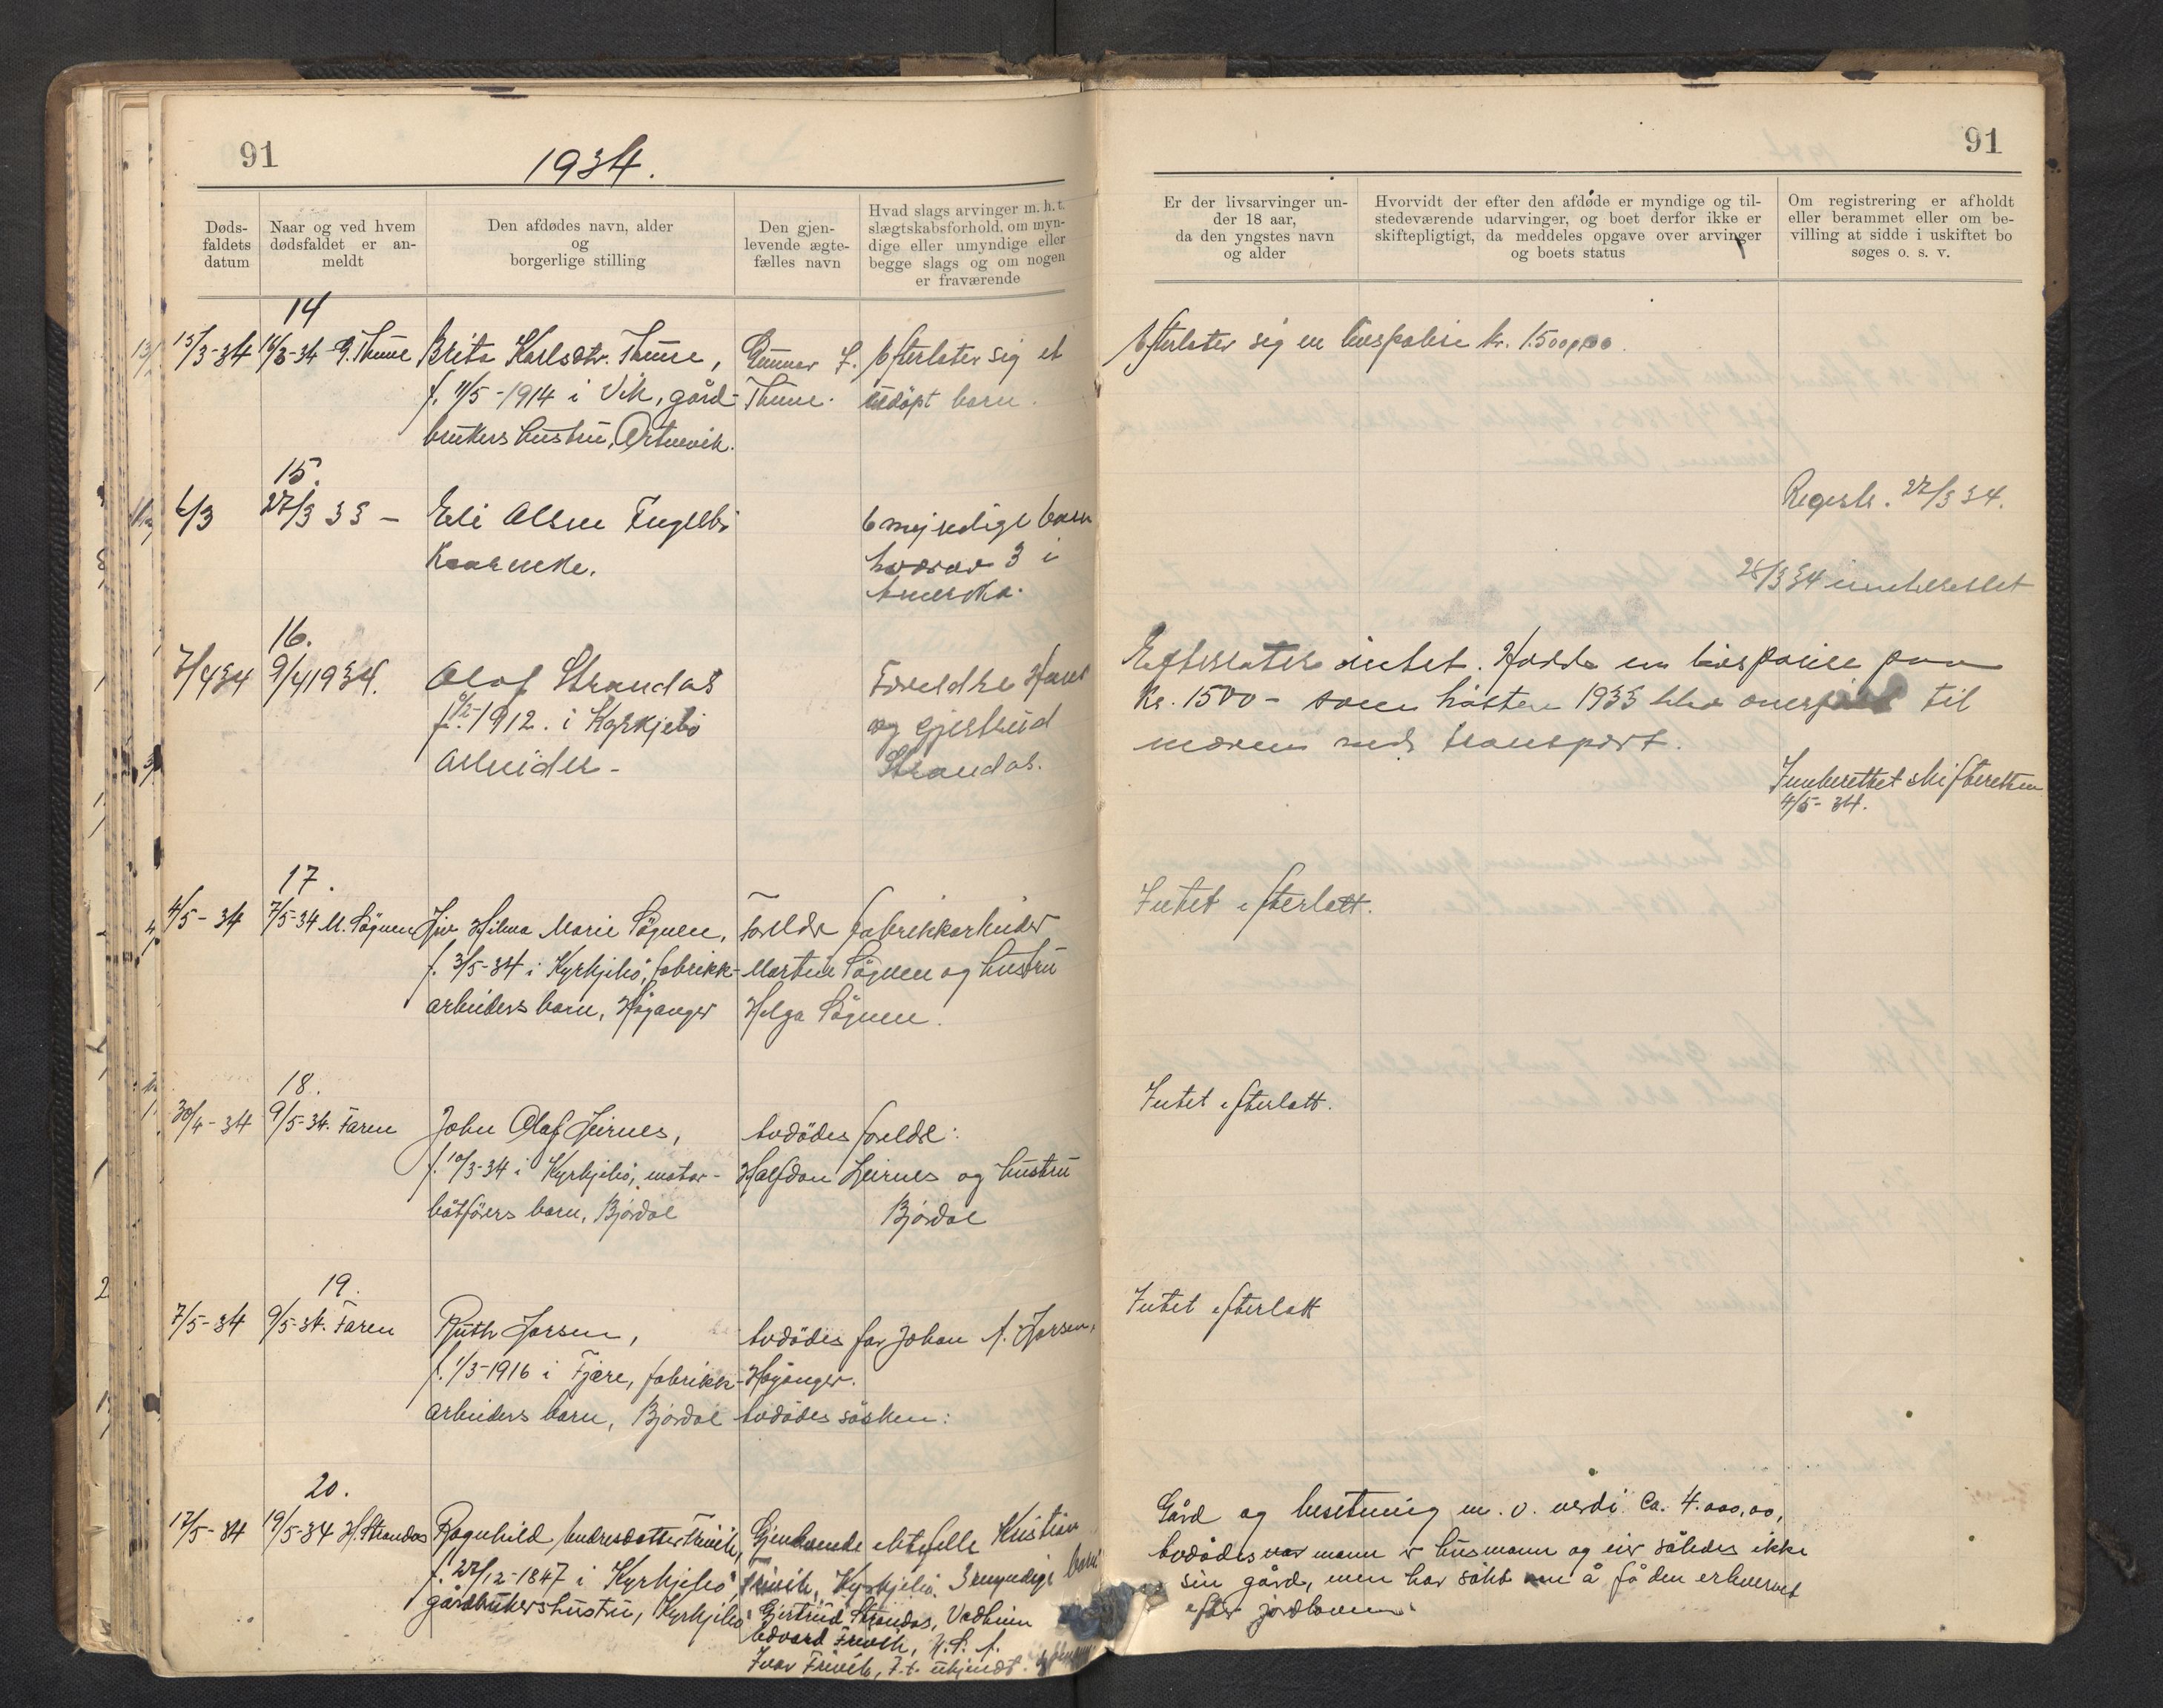 91
1934.
Døds-
faldets
datum
Naar og ved hvem
dødsfaldet er an-
meldt
Den afdødes navn, alder
og
borgerlige stilling
Den gjen-
levende ægte-
fælles navn
Hvad slags arvinger m. h. t.
slægtskabsforhold, om myn-
dige eller umyndige eller
begge slags og om nogen
er fraværende
14
15/3-34 16/3-34 G. Thune Brita Karlsdtr. Thune, Gunnar L. Efterlater sig et
f. 11/5-1914 i Vik, gård- Thune. udöpt barn.
brukers hustru, Ortnevik.
15.
6/3 27/3 33 - Eli Olsen Fuglebö 6 myndige barn
hvorav 3 i
Amerika.
16.
7/4 34 9/4 1934. Olaf Strandos Foreldre Hans
1912. i Kyrkjebö og Gjertrud
Arbeider - Strandos.
17.
4/5-34 7/5-34 M. Sögnen Liv Hilma Marie Sögnen, Foreldre fabrikkarbeider
f. 3/5-34 i Kyrkjebö, fabrikk- Martin Sögnen og hustru
arbeiders barn, Höyanger Helga Sögnen.
18.
30/4-34 9/5-34. Faren John Olaf Leirnes, Avdödes foreldre:
f. 10/3-34 i Kyrkjebö, motor- Halfdan Leirnes og hustru
båtförers barn, Bjordal Bjordal
19.
7/5-34 9/5-34. Faren Ruth Larsen, Avdödes far Johan A. Larsen,
f. 1/3-1916 i Fjære, fabrikk- Höyanger.
arbeiders barn, Bjordal Avdödes søsken:
20.
17/5-34 19/5-34 H. Strandos Ragnhild Andresdotter Trivik, Gjenlevende ektefelle Kristian
f. 27/12-1847 i Kyrkjebö Kyrkjebö. 3 myndige barn
gårdbrukers hustru, Kyrkjebö Gjertrud Strandos, Vadheim
Edvard U.S.A.
Ivar F.t. ukjendt.
91
Er der livsarvinger un-
der 18 aar,
da den yngstes navn
og alder
Hvorvidt der efter den afdøde er myndige og til-
stedeværende udarvinger, og boet derfor ikke er
skiftepligtigt, da meddeles opgave over arvinger
og boets status
Om registrering er afholdt
eller berammet eller om be-
villing at sidde i uskiftet bo
søges o. s. v.
Efterlater sig en livspolise kr. 1500,00.
Registr. 27/3 34.
28/3 34 innberettet
Efterlater intet. Hadde en livspolise paa
Kr. 1500 - som hösten 1933 blev overfört til
moren ved transport.
Innberettet skifteretten
4/5-34.
Intet efterlatt.
Intet efterlatt.
Intet efterlatt
Gård og besetning m. v. verdi ca. 4.000,00,
avdödes mann er husmann og eier således ikke
sin gård, men har søkt om å få den erhvervet
efter jordloven.